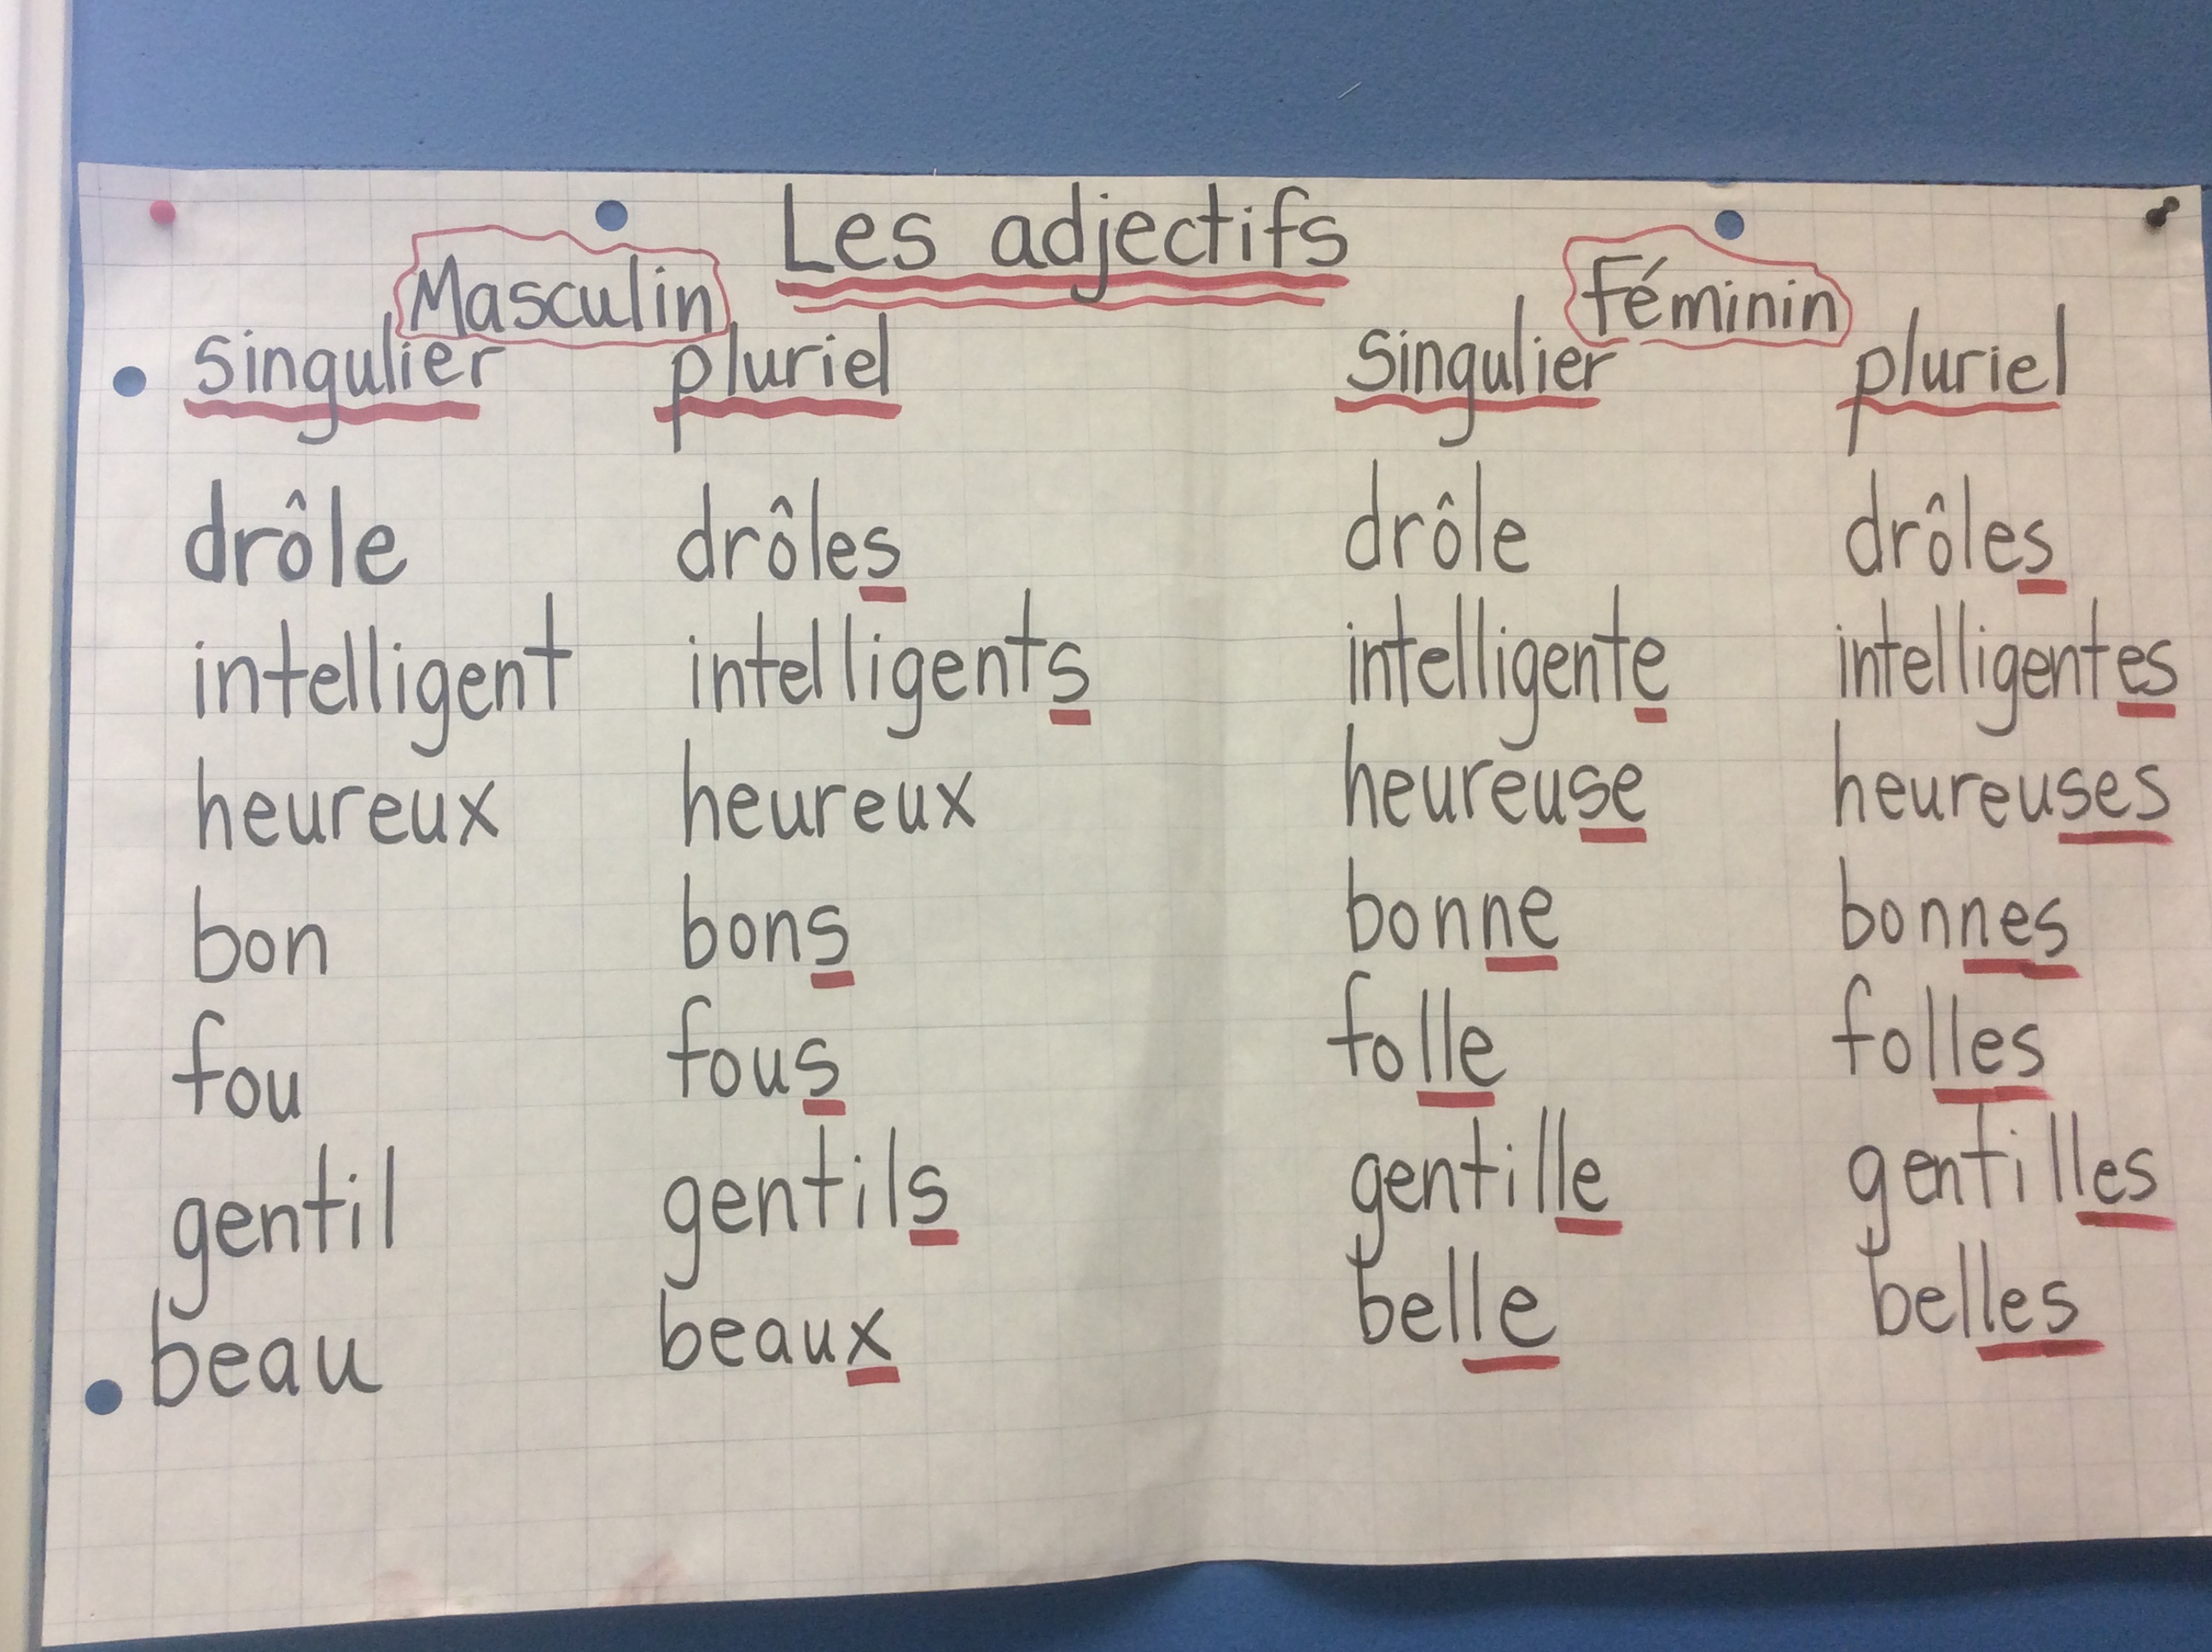 Les adjectifs
Masculin Féminin
singulier pluriel singulier pluriel
drôle drôles drôle drôles
intelligent intelligents intelligente intelligentes
heureux heureux heureuse heureuses
bon bons bonne bonnes
fou fous folle folles
gentil gentils gentille gentilles
beau beaux belle belles